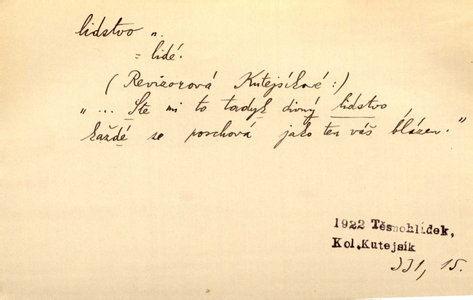 lidstvo n.
= lidé.
(Revizorová Kutejsíkové:)
"... Sté mi to tadyk divný lidstvo
každé se poschová jako ten váš blázen."
1922 Těsnohlídek,
Kol.Kutejsik
III, 15.